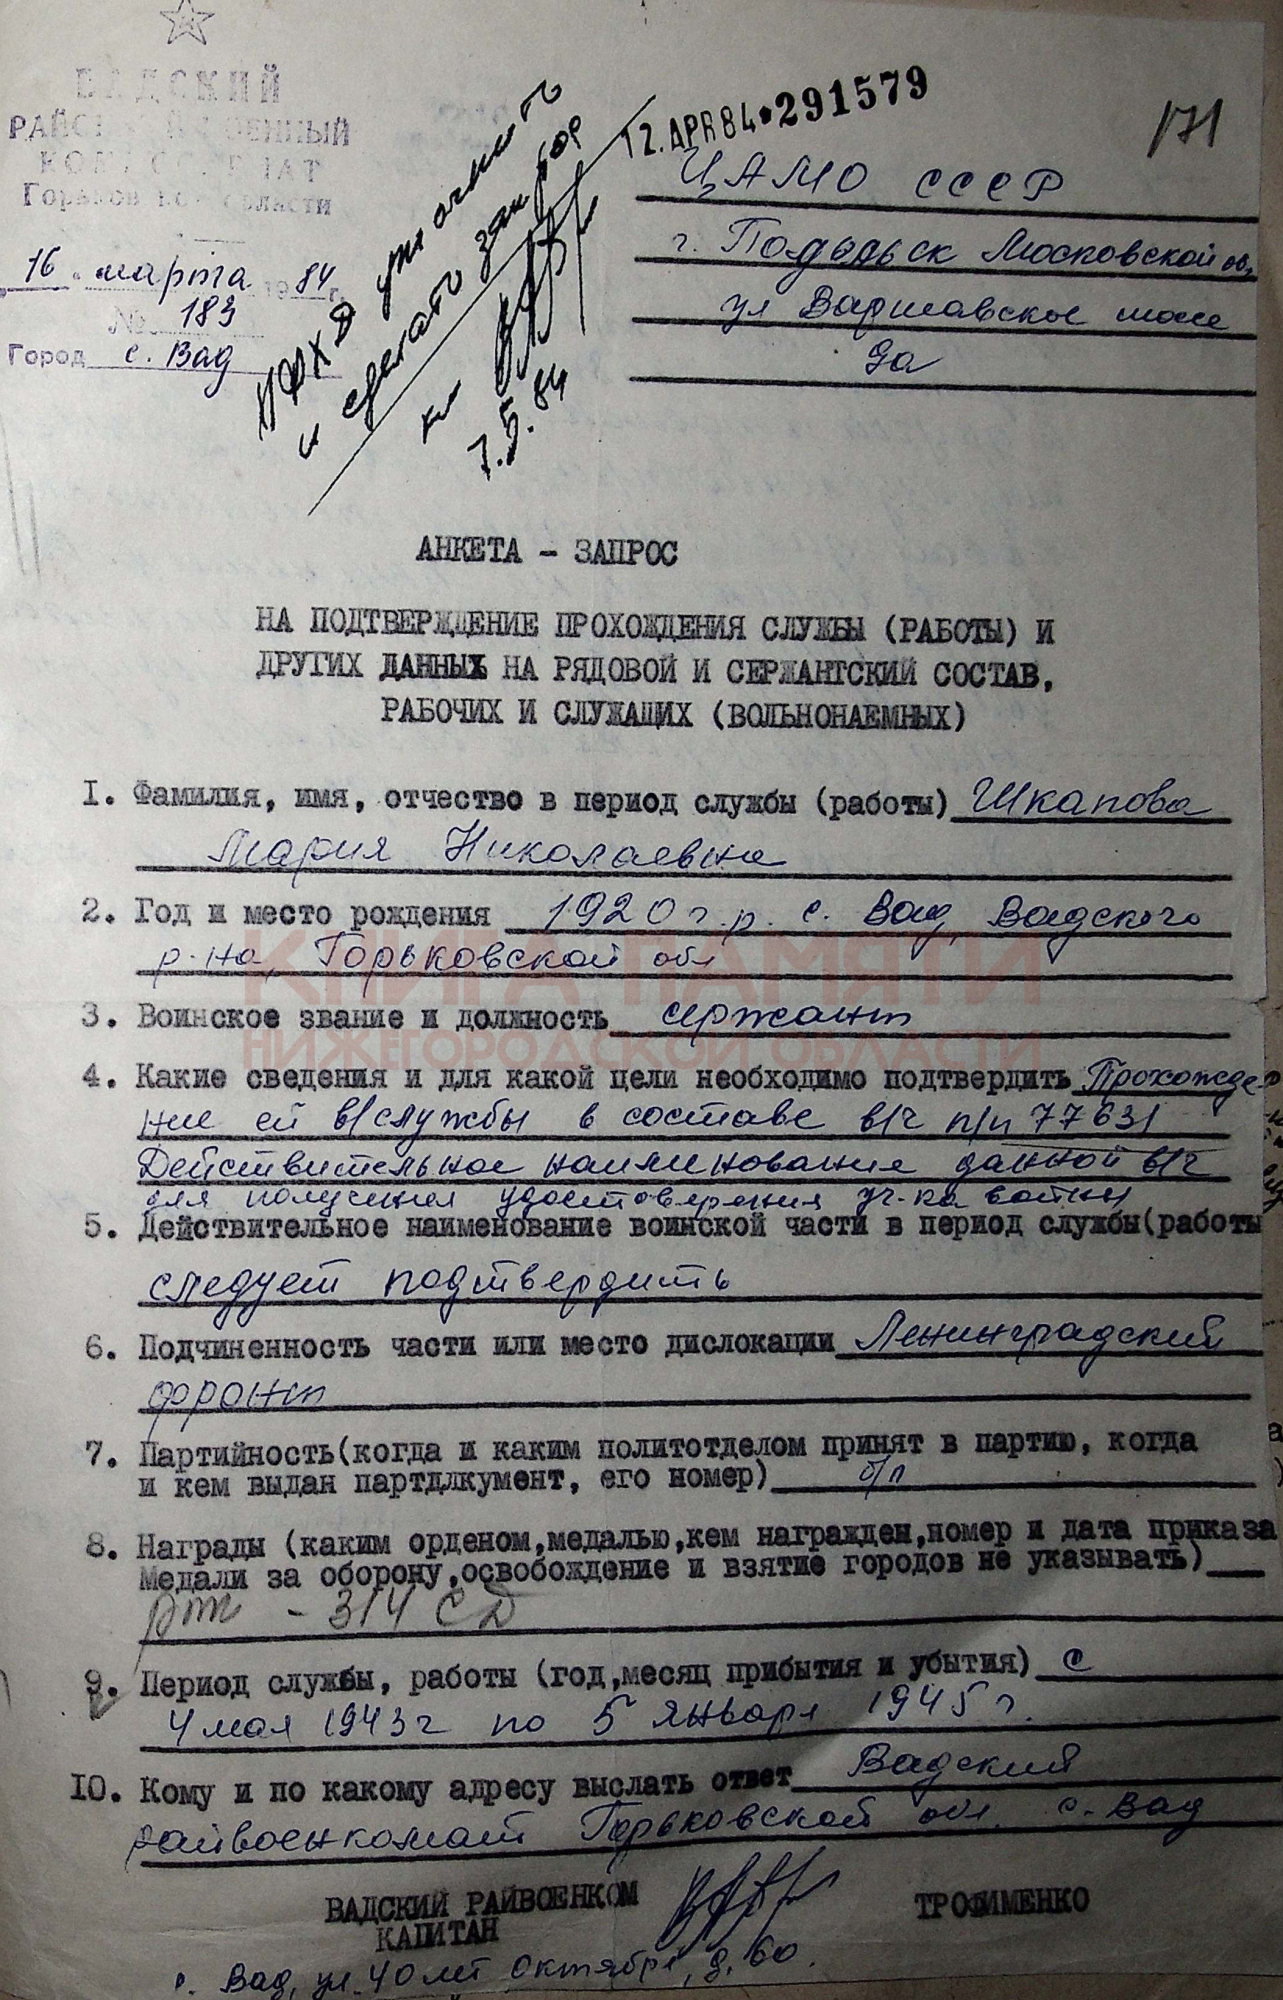 ВАДСКИЙ
РАЙОННЫЙ ВОЕННЫЙ
КОМИССАРИАТ
Горьковской области
16 марта 1984 г.
№ 183
Город с. Вад
НФХД уточнить
и сделать
7.5.84
12.APR84•291579
171
ЦАМО СССР
г. Подольск Московской об.
ул Варшавское шоссе
9а
АНКЕТА - ЗАПРОС
НА ПОДТВЕРЖДЕНИЕ ПРОХОЖДЕНИЯ СЛУЖБЫ (РАБОТЫ) И
ДРУГИХ ДАННЫХ НА РЯДОВОЙ И СЕРЖАНТСКИЙ СОСТАВ,
РАБОЧИХ И СЛУЖАЩИХ (ВОЛЬНОНАЕМНЫХ)
1. Фамилия, имя, отчество в период службы (работы) Шкапова
Мария Николаевна
2. Год и место рождения 1920 г.р. с. Вад, Вадского
р-на, Горьковской обл
КНИГА ПАМЯТИ
3. Воинское звание и должность сержант
НИЖЕГОРОДСКОЙ ОБЛАСТИ
4. Какие сведения и для какой цели необходимо подтвердить Прохожде-
ние ей в/службы в составе в/ч п/п 77631
Действительное наименование данной в/ч
для получения удостоверения уч-ка войны
5. Действительное наименование воинской части в период службы(работы
следует подтвердить
6. Подчиненность части или место дислокации Ленинградский
фронт
7. Партийность(когда и каким политотделом принят в партию, когда
и кем выдан партдлкумент, его номер) б/п
8. Награды (каким орденом,медалью,кем награжден,номер и дата приказа
Медали за оборону,освобождение и взятие городов не указывать)
- 314 СД
9. Период службы, работы (год,месяц прибытия и убытия) с
4 мая 1943г по 5 января 1945 г.
10. Кому и по какому адресу выслать ответ Вадский
райвоенкомат Горьковской обл. с. Вад
ВАДСКИЙ РАЙВОЕНКОМ
КАПИТАН
ТРОФИМЕНКО
с. Вад, ул. 40 лет Октября, д. 60.